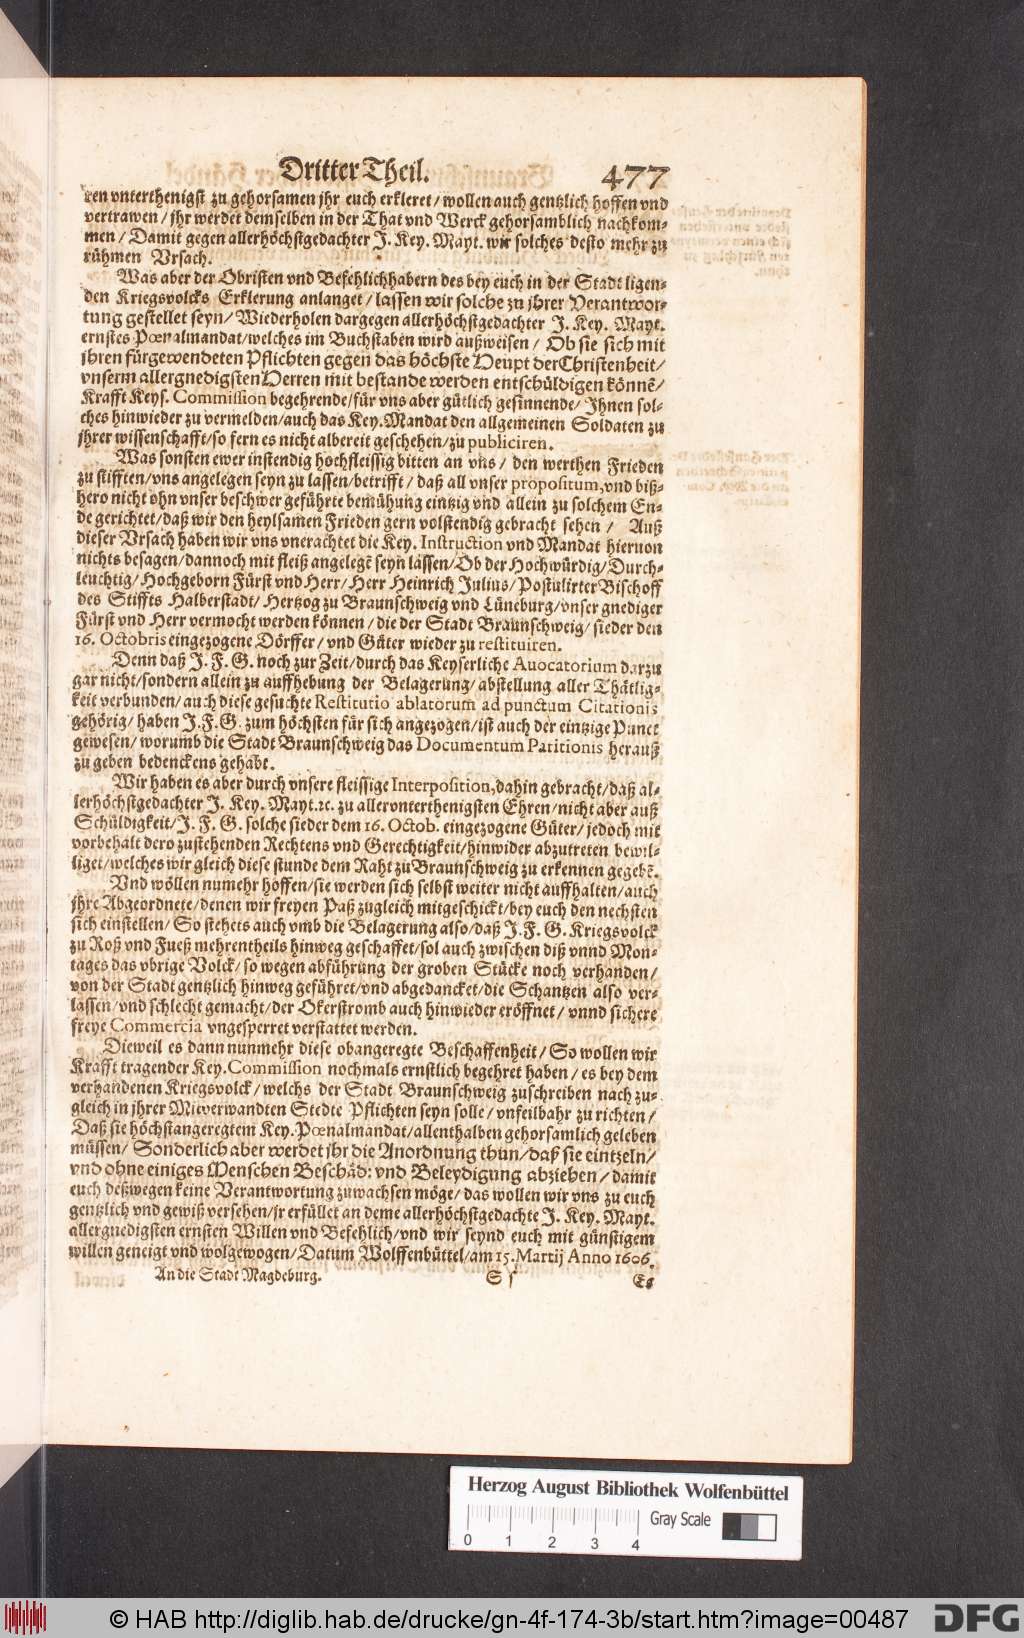 Dritter Theil. 477
ren vnterthenigst zu gehorsamen jhr euch erkleret / wollen auch gentzlich hoffen vnd
vertrawen / jhr werdet demselben in der That vnd Werck gehorsamblich nachkom-
men / Damit gegen allerhöchstgedachter J. Key. Mayt. wir solches desto mehr zu
rühmen Vrsach.
Was aber der Obristen vnd Befehlichhabern des bey euch in der Stadt ligen-
den Kriegsvolcks Erklerung anlanget / lassen wir solche zu jhrer Verantwor-
tung gestellet seyn / Wiederholen dargegen allerhöchstgedachter J. Key. Mayt.
ernstes Pœnalmandat / welches im Buchstaben wird außweisen / Ob sie sich mit
jhren fürgewendeten Pflichten gegen das höchste Heupt der Christenheit /
vnserm allergnedigsten Herren mit bestande werden entschüldigen könnē /
Krafft Keys. Commission begehrende / für vns aber gütlich gesinnende / Ihnen sol-
ches hinwieder zu vermelden / auch das Key. Mandat den allgemeinen Soldaten zu
jhrer wissenschafft / so fern es nicht albereit geschehen / zu publiciren.
Was sonsten ewer instendig hochfleissig bitten an vns / den werthen Frieden
zu stifften / vns angelegen seyn zu lassen / betrifft / daß all vnser propositum, vnd biß-
hero nicht ohn vnser beschwer geführte bemühung eintzig vnd allein zu solchem En-
de gerichtet / daß wir den heylsamen Frieden gern volstendig gebracht sehen / Auß
dieser Vrsach haben wir vns vnerachtet die Key. Instruction vnd Mandat hieruon
nichts besagen / dannoch mit fleiß angelegt seyn lassen / Ob der Hochwürdig / Durch-
leuchtig / Hochgeborn Fürst vnd Herr / Herr Heinrich Julius / Postulirter Bischoff
des Stiffts Halberstadt / Hertzog zu Braunschweig vnd Lüneburg / vnser gnediger
Fürst vnd Herr vermocht werden können / die der Stadt Braunschweig / sieder den
16. Octobris eingezogene Dörffer / vnd Güter wieder zu restituiren.
Denn daß J. F. G. noch zur Zeit / durch das Keyserliche Auocatorium darzu
gar nicht / sondern allein zu auffhebung der Belagerung / abstellung aller Thätlig-
keit verbunden / auch diese gesuchte Restitutio ablatorum ad punctum Citationis
gehörig / haben J.F.G. zum höchsten für sich angezogen / ist auch der eintzige Punct
gewesen / worumb die Stadt Braunschweig das Documentum Paritionis herauß
zu geben bedenckens gehabt.
Wir haben es aber durch vnsere fleissige Interposition, dahin gebracht / daß al-
lerhöchstgedachter J. Key. Mayt. ꝛc. zu allervnterthenigsten Ehren / nicht aber auß
Schüldigkeit / J. F. G. solche sieder dem 16. Octob. eingezogene Güter / jedoch mit
vorbehalt dero zustehenden Rechtens vnd Gerechtigkeit / hinwider abzutreten bewil-
liget / welches wir gleich diese stunde dem Raht zu Braunschweig zu erkennen gegebē.
Vnd wöllen numehr hoffen / sie werden sich selbst weiter nicht auffhalten / auch
jhre Abgeordnete / denen wir freyen Paß zugleich mitgeschickt / bey euch den nechsten
sich einstellen / So stehets auch vmb die Belagerung also / daß J. F. G. Kriegsvolck
zu Roß vnd Fueß mehrentheils hinweg geschaffet / sol auch zwischen diß vnnd Mon-
tages das vbrige Volck / so wegen abführung der groben Stücke noch verhanden /
von der Stadt gentzlich hinweg geführet / vnd abgedancket / die Schantzen also ver-
lassen / vnd schlecht gemacht / der Okerstromb auch hinwieder eröffnet / vnnd sichere
freye Commercia vngesperret verstattet werden.
Dieweil es dann nunmehr diese obangeregte Beschaffenheit / So wollen wir
Krafft tragender Key. Commission nochmals ernstlich begehret haben / es bey dem
verhandenen Kriegsvolck / welchs der Stadt Braunschweig zuschreiben nach zu-
gleich in jhrer Mitverwandten Stedte Pflichten seyn solle / vnfeilbahr zu richten /
Daß sie höchstangeregtem Key. Pœnalmandat / allenthalben gehorsamlich geleben
müssen / Sonderlich aber werdet jhr die Anordnung thun / daß sie eintzeln /
vnd ohne einiges Menschen Beschäd: vnd Beleydigung abziehen / damit
euch deßwegen keine Verantwortung zuwachsen möge / das wollen wir vns zu euch
gentzlich vnd gewiß versehen / jr erfüllet an deme allerhöchstgedachte J. Key. Mayt.
allergnedigsten ernsten Willen vnd Befehlich / vnd wir seynd euch mit günstigem
willen geneigt vnd wolgewogen / Datum Wolffenbüttel / am 15. Martij Anno 1606.
An die Stadt Magdeburg. S s Es
Herzog August Bibliothek Wolfenbüttel
Gray Scale
0 1 2 3 4
© HAB http://diglib.hab.de/drucke/gn-4f-174-3b/start.htm?image=00487 DFG